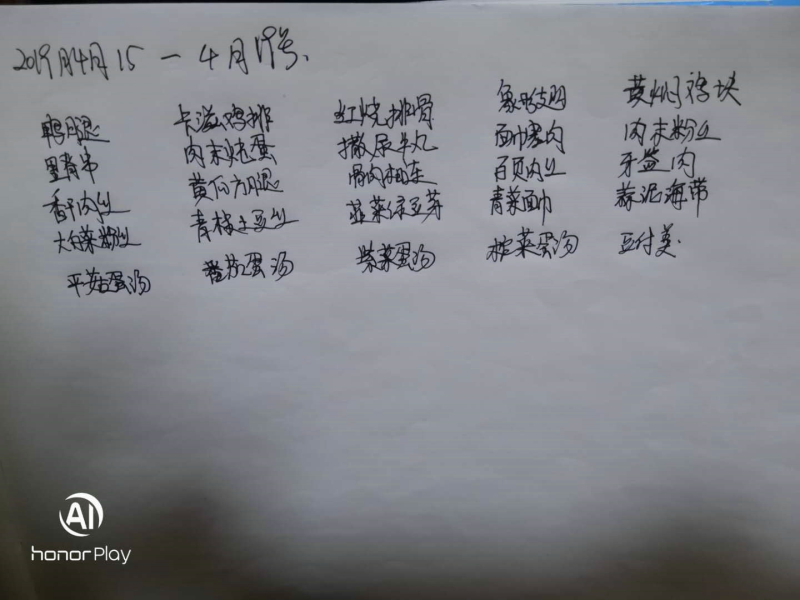 2019年4月15 — 4月19号、
鸭腿 卡滋鸡排 红烧排骨 鸡翅 黄焖鸡块
里脊串 肉末炖蛋 撒尿牛丸 面巾塞肉 肉末粉丝
香干肉丝 黄瓜方腿 百页肉丝 牙签肉
大白菜粉丝 青椒土豆丝 韭菜绿豆芽 青菜面巾 蒜泥海带
平菇蛋汤 番茄蛋汤 紫菜蛋汤 榨菜蛋汤 豆付羹
AI
honor Play